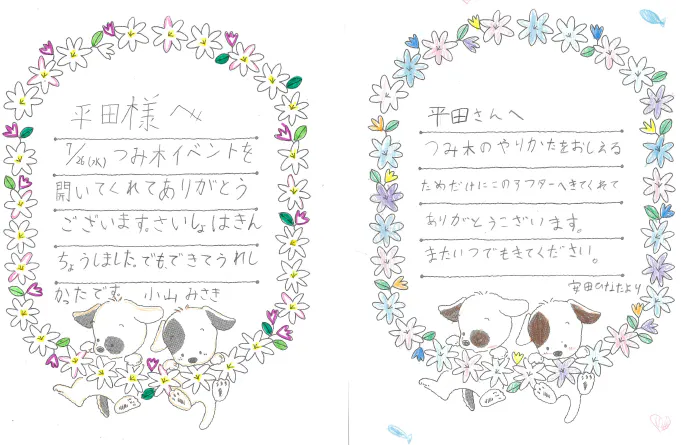 平田様へ
7/26(水)つみ木イベントを
開いてくれてありがとう
ございます。さいしょはきん
ちょうしました。でも、できてうれし
かったです。 小山 みさき
平田さんへ
つみ木のやりかたをおしえる
ためだけにこのアフターへきてくれて
ありがとうございます。
またいつでもきてください。
安田ひなたより